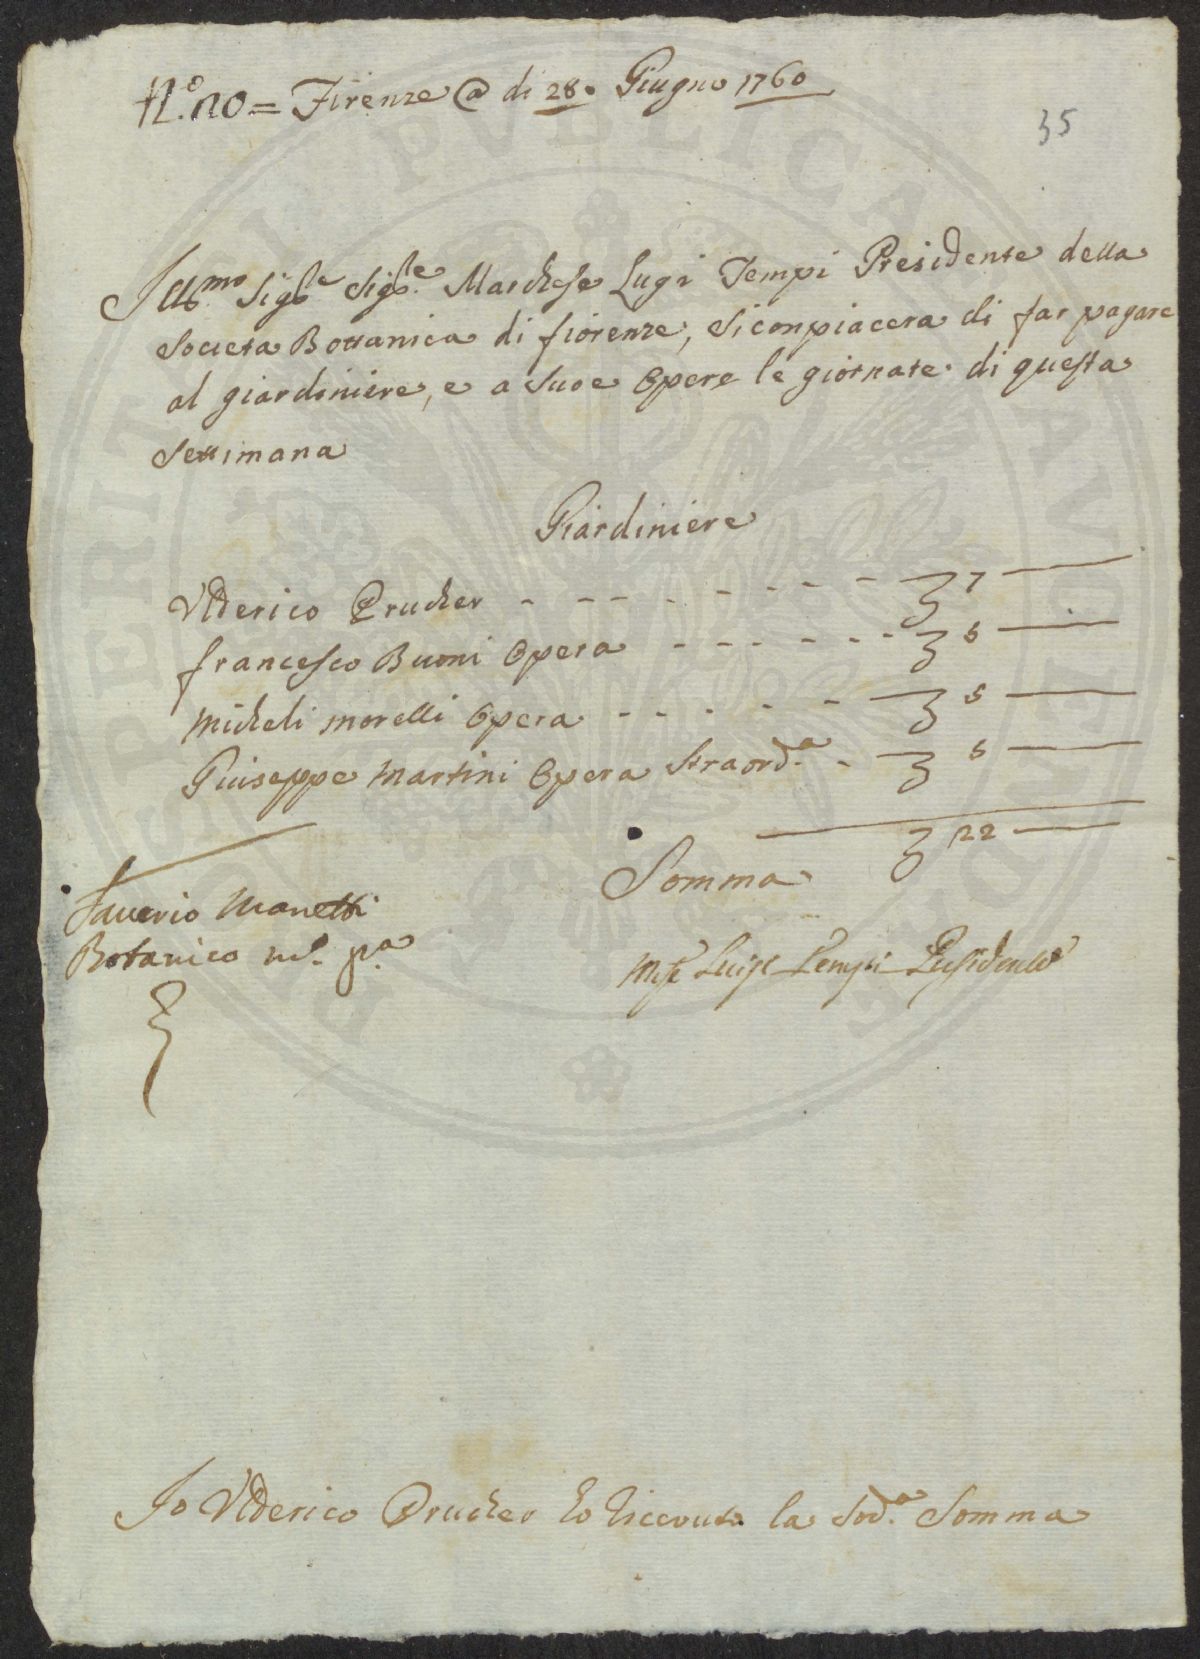 N.° 20 = Firenze @ di 28. Giugno 1760
35
Ill.mo Sig.re Sig.re Marchese Lugi Tempi Presidente della
Societa Bottanica di fiorenze, Si conpiacera di far pagare
al giardiniere, e a Suoe Opere le giornate di questa
Settimana
Giardiniere
Ulderico Prucher - - - - - - - - 7
francesco Buoni Opera - - - - - - - 5
Micheli Morelli Opera - - - - - - 5
Giuseppe Martini Opera Straord.a - 5
22
Somma
Saverio Manetti
Botanico m.o p.a
M.se Luigi Tempi Presidente
Io Ulderico Prucher ho riceuuto la Sod.a Somma